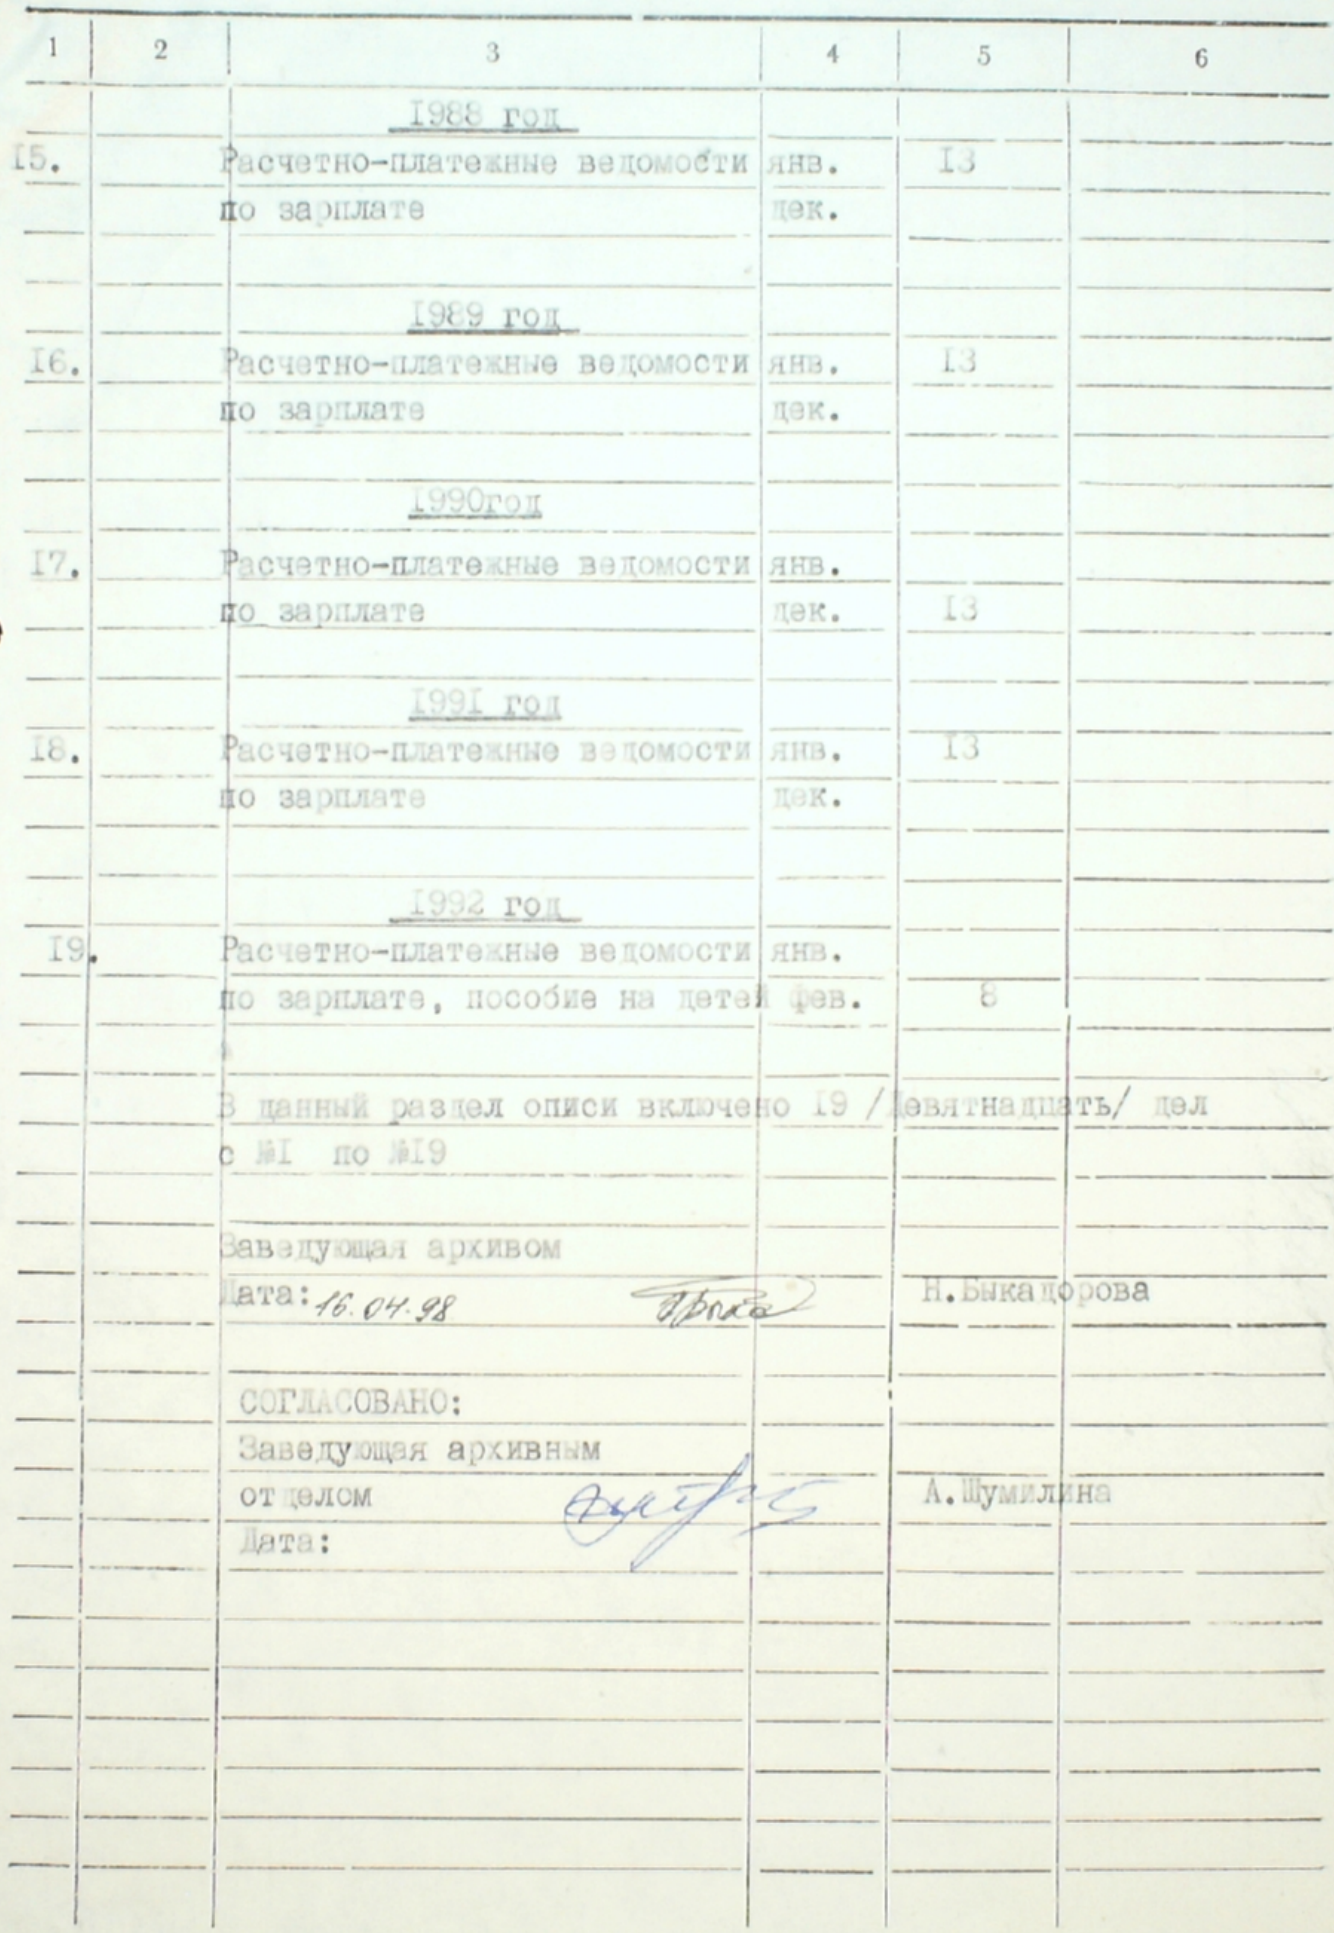 1 2 3 4 5 6
1988 год
15. Расчетно-платежные ведомости янв. 13
по зарплате дек.
1989 год
16. Расчетно-платежные ведомости янв. 13
по зарплате дек.
1990год
17. Расчетно-платежные ведомости янв.
по зарплате дек. 13
1991 год
18. Расчетно-платежные ведомости янв. 13
по зарплате дек.
1992 год
19. Расчетно-платежные ведомости янв.
по зарплате, пособие на детей фев. 8
В данный раздел описи включено 19 /Девятнадцать/ дел
с №1 по №19
Заведующая архивом
Дата: 16.04.98 Н.Быкадорова
СОГЛАСОВАНО:
Заведующая архивным
отделом А.Шумилина
Дата: